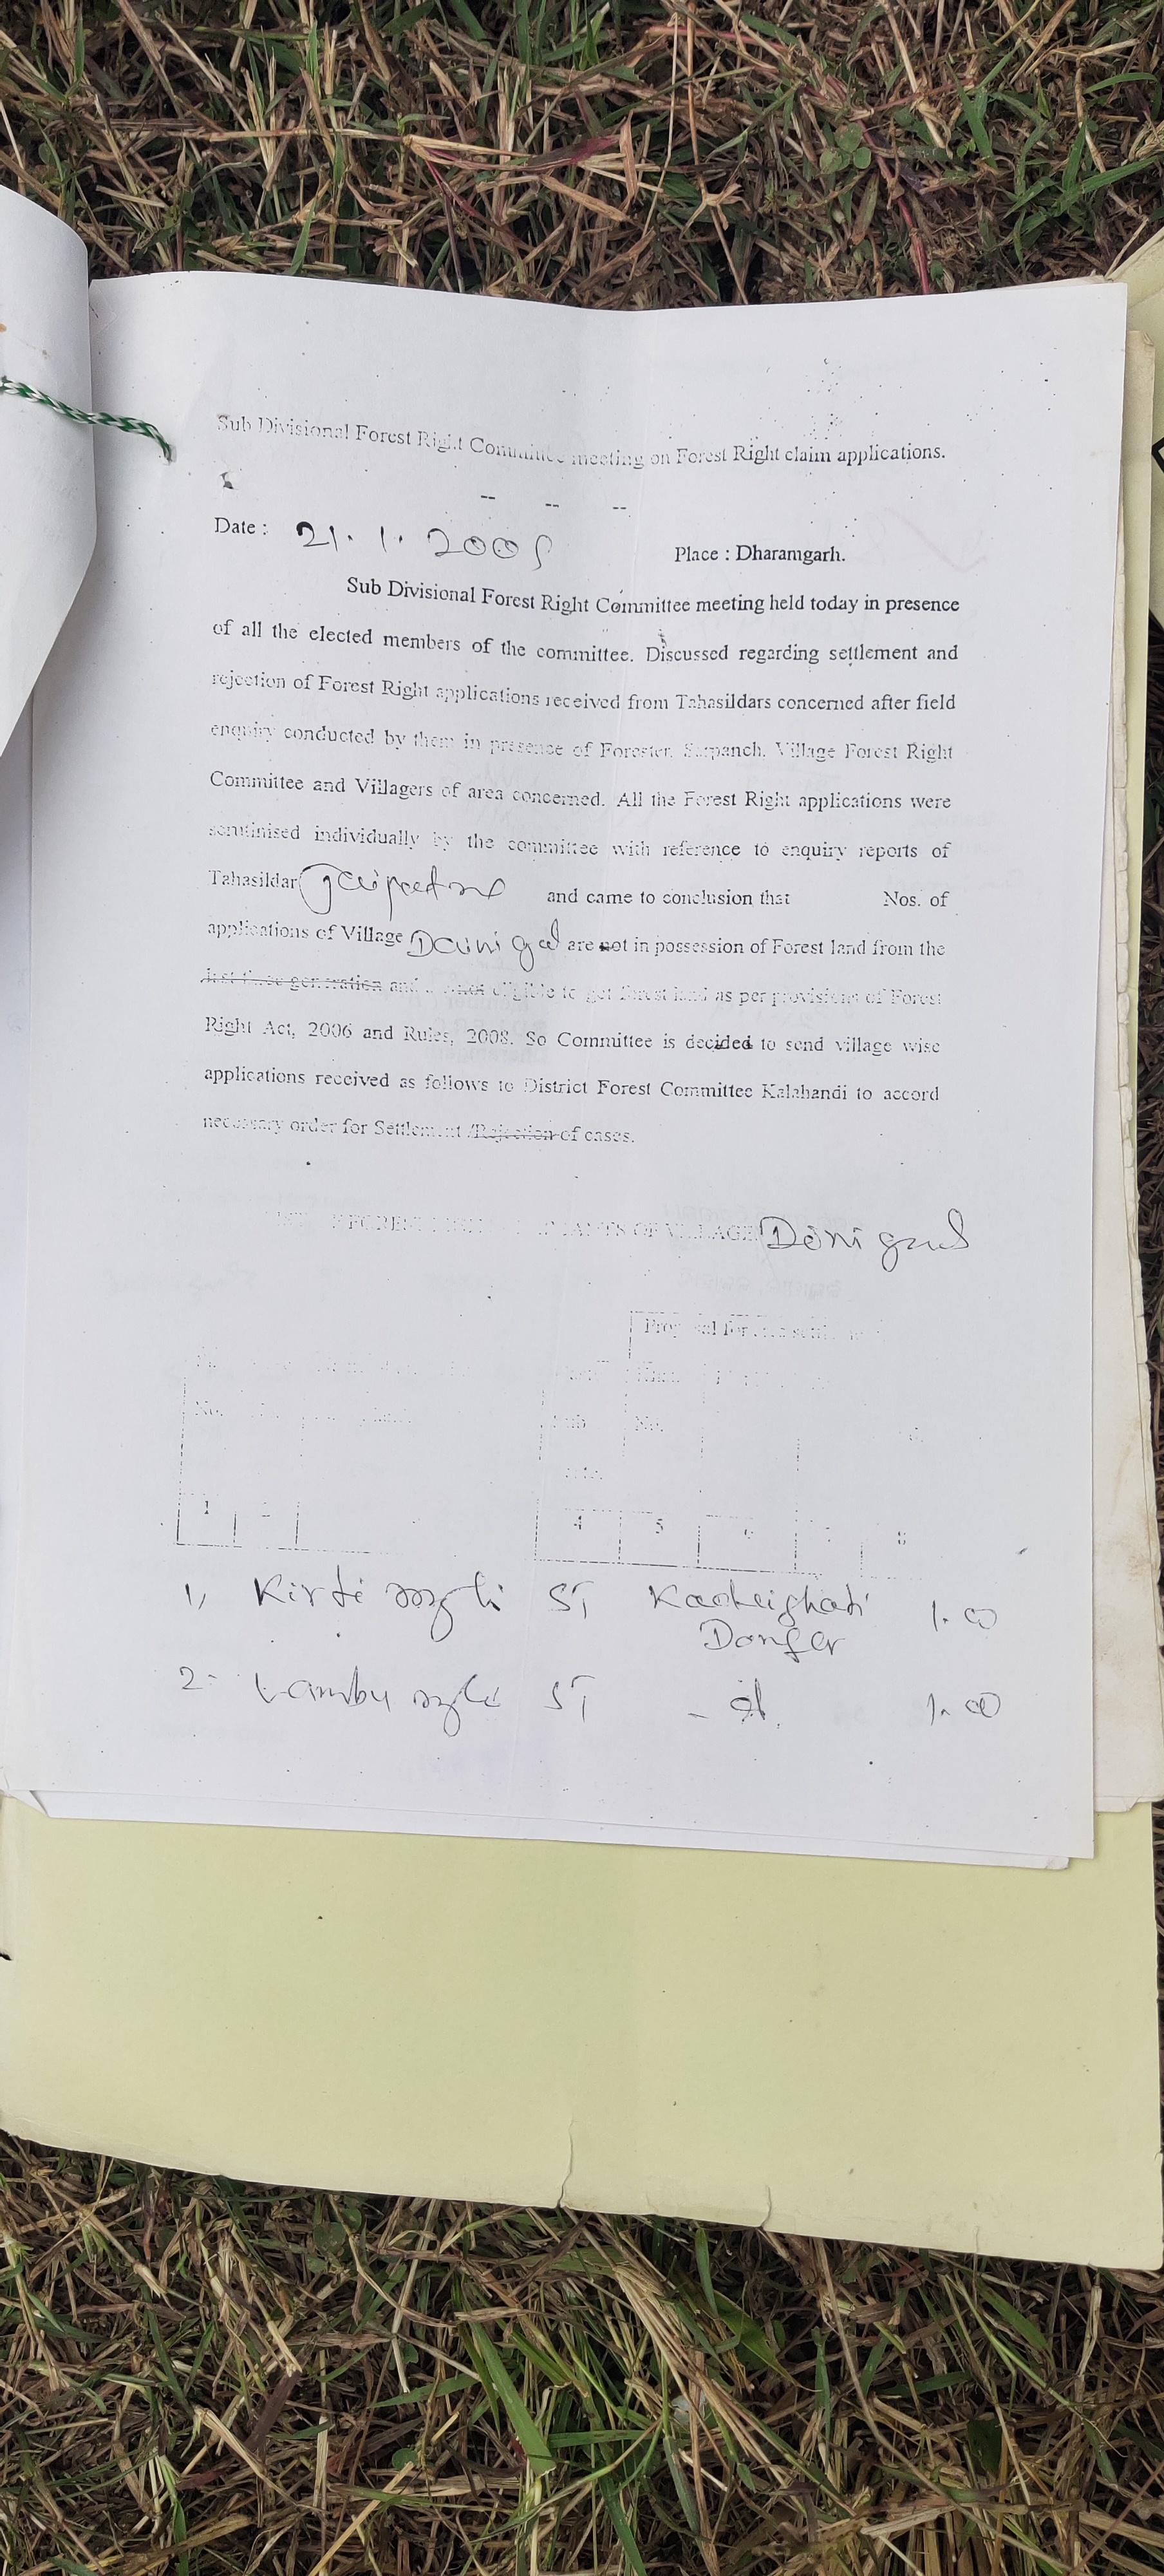 Sub Divisional Forest Right Committee meeting on Forest Right claim applications.
-- -- --
Date : 21.1.2009 Place : Dharamgarh.
Sub Divisional Forest Right Committee meeting held today in presence
of all the elected members of the committee. Discussed regarding settlement and
rejection of Forest Right applications received from Tahasildars concerned after field
enquiry conducted by them in presence of Forester, Sarpanch, Village Forest Right
Committee and Villagers of area concerned. All the Forest Right applications were
scrutinised individually by the committee with reference to enquiry reports of
Tahasildar and came to conclusion that Nos. of
applications of Village are not in possession of Forest land from the
last three generation and not eligible to get forest land as per provisions of Forest
Right Act, 2006 and Rules, 2008. So Committee is decided to send village wise
applications received as follows to District Forest Committee Kalahandi to accord
necessary order for Settlement /Rejection of cases.
OF VILLAGE
Proposal for
No. No.
1 4 5 8
1, Kirti ST 1.00
Donger
2- ST 1.00